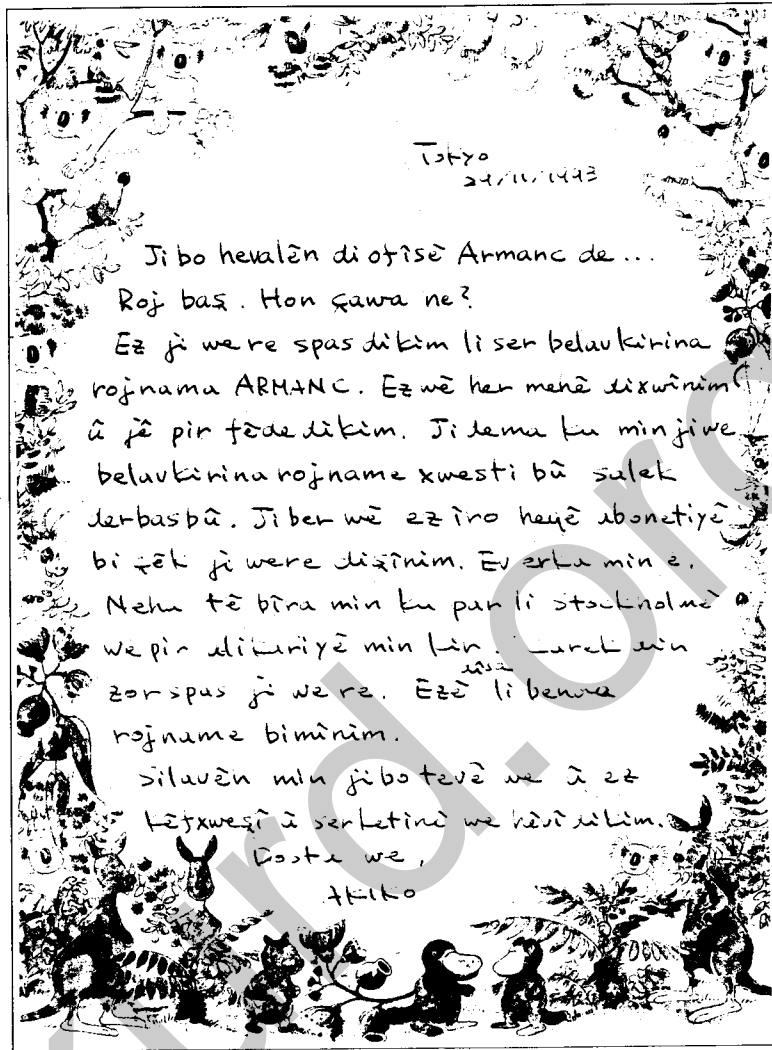 Tokyo
29/11/1993
Ji bo hevalên di ofîsê Armanc de...
Roj baş. Hon çawa ne?
Ez ji we re spas dikim li ser belavkirina
rojnama ARMANC. Ez wê her mehê dixwînim
û jê pir fêde dikim. Ji dema ku min ji we
belavkirina rojname xwesti bû salek
derbas bû. Ji ber wê ez îro heqê abonetiyê
bi çêk ji we re dişînim. Ev erka min e.
Neha tê bîra min ku par li Stockholmê
we pir alikariyê min kir. Carek din
zor spas ji we re. Ezê dîsa li benda
rojname bimînim.
Silavên min ji bo tevê we û ez
kêfxweşî û serketinê we hêvî dikim.
Dosta we,
Akiko